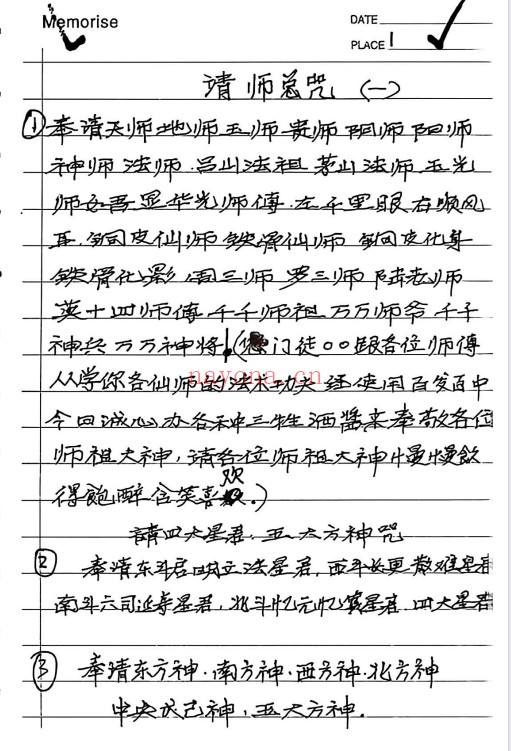 Memorise
DATE
PLACE 1
请师总咒 (一)
① 奉请天师地师玉师贵师阴师阳师
神师法师.吕山法祖茅山法师.玉光
师 吾显华光师傅.左千里眼右顺风
耳.铜皮仙师铁骨仙师 铜皮化身
铁骨化影 周三师 罗三师 陆老师
英十四师傅.千千师祖万万师爷千千
神兵万万神将!(您门徒〇〇跟各位师傅
从学你各仙师的法术功夫 还使用百发百中
今日诚心办各种三牲酒酱来奉敬各位
师祖大神,请各位师祖大神慢慢飲
得飽醉含笑喜欢.)
nayona.cn
請四大星君.五大方神咒
② 奉请东斗启明立法星君,西斗长更散难星君
南斗六司延寿星君,北斗忆元忆寰星君.四大星君
③ 奉请东方神.南方神.西方神.北方神
中央戊己神,五大方神.